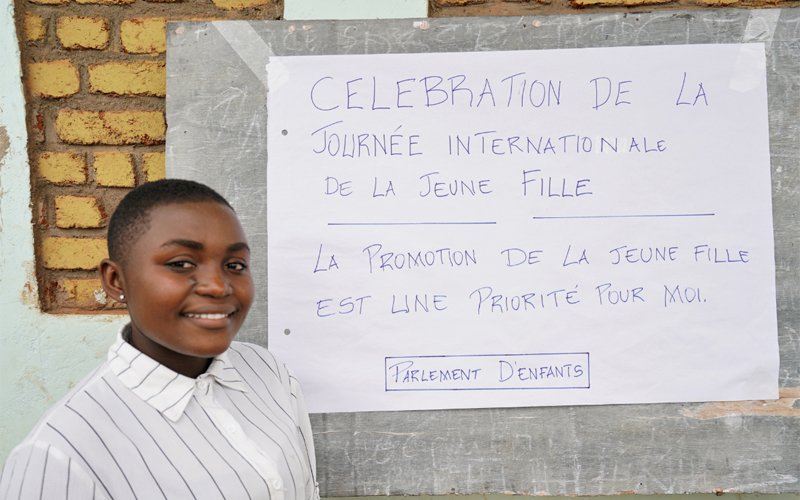 CELEBRATION DE LA
JOURNÉE INTERNATIONALE
DE LA JEUNE FILLE
LA PROMOTION DE LA JEUNE FILLE
EST UNE PRIORITÉ POUR MOI.
PARLEMENT D'ENFANTS